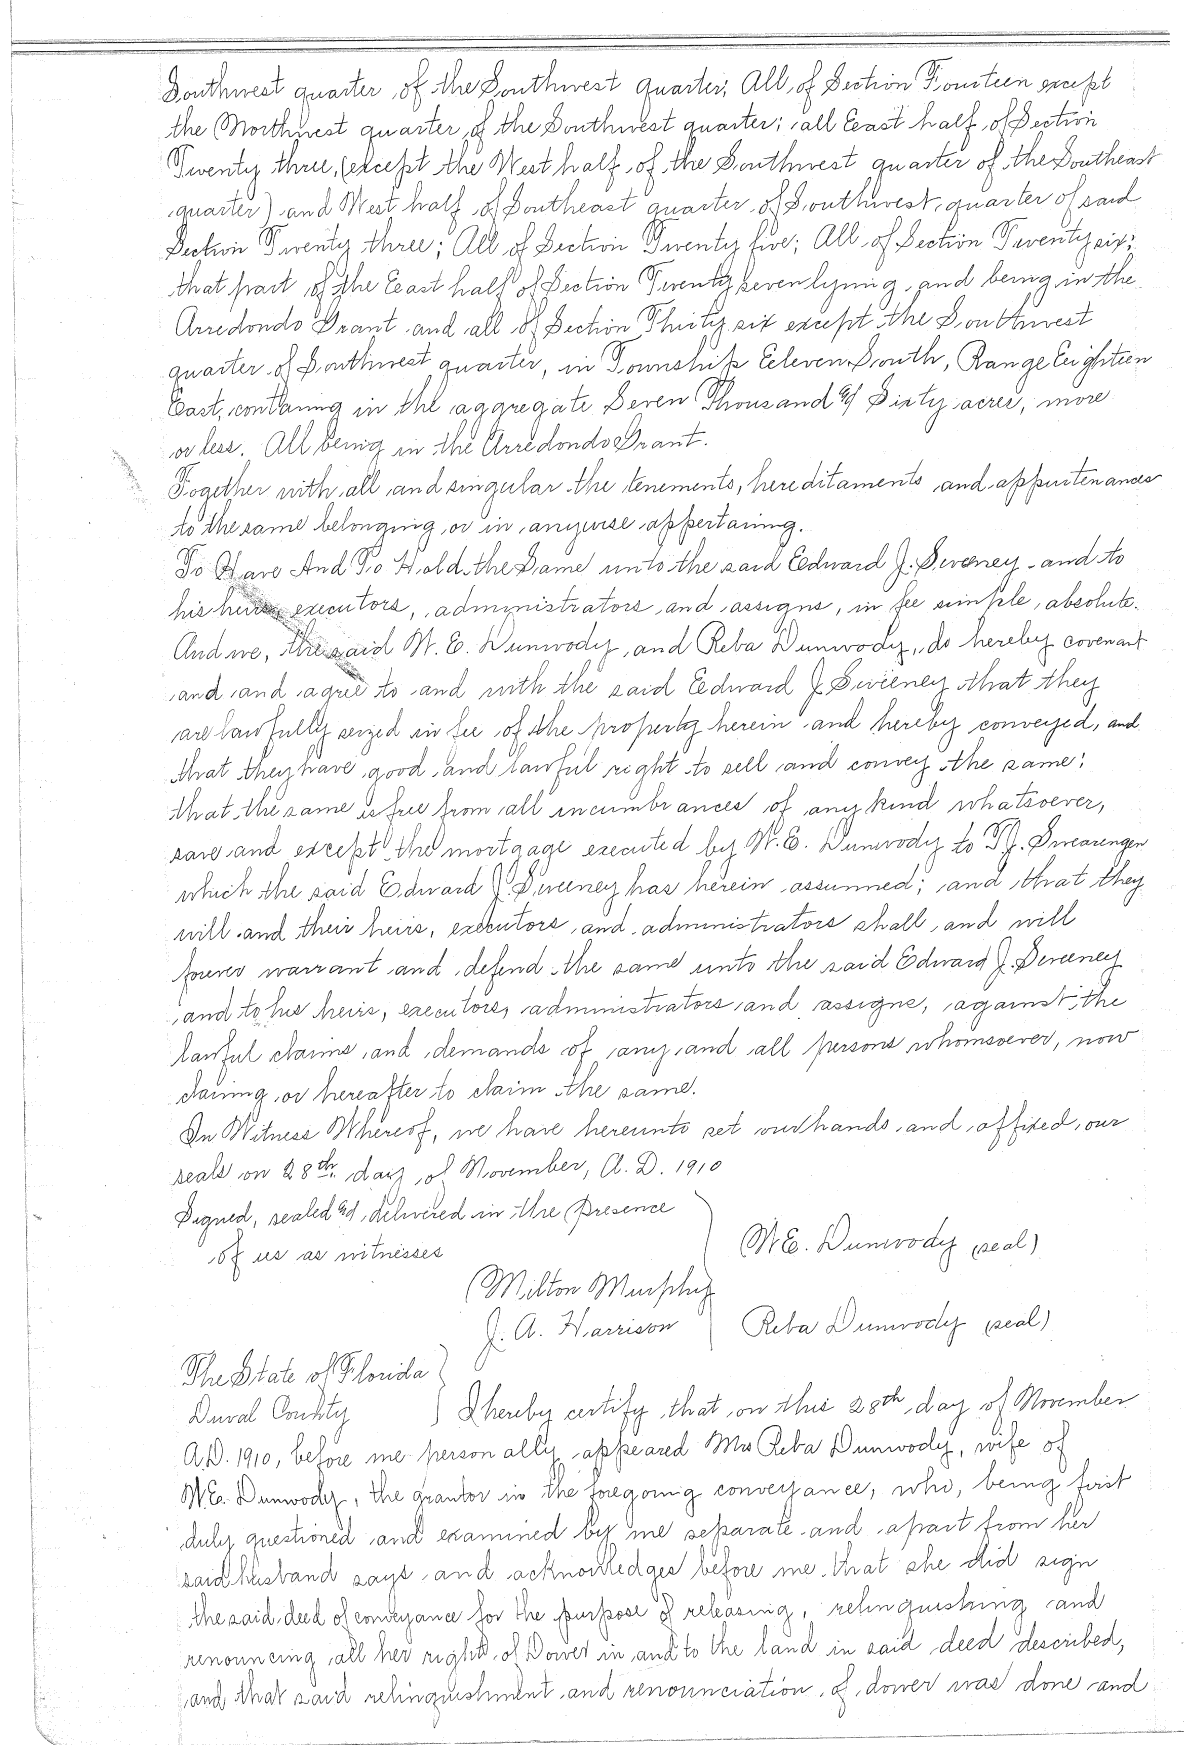 Southwest quarter of the Southwest quarter; All of Section Fourteen except
the Northwest quarter of the Southwest quarter; all East half of Section
Twenty three, (except the West half of the Southwest quarter of the Southeast
quarter) and West half of Southeast quarter of Southwest quarter of said
Section Twenty three; All of Section Twenty five; All of Section Twenty six;
that part of the East half of Section Twenty seven lying and being in the
Arredondo Grant and all of Section Thirty six except the Southwest
quarter of Southwest quarter, in Township Eeleven South, Range Eeighteen
East, contaning in the aggregate Seven Thousand & Sixty acres, more
or less. All being in the Arredondo Grant.
Together with all and singular the tenements, hereditaments and appurtenances
to the same belonging or in anywise appertaining.
To Have And To Hold the Same unto the said Edward J. Sweeney and to
his heirs executors, administrators and assigns, in fee simple, absolute.
And we, the said W. E. Dunwody, and Reba Dunwody, do hereby covenant
and and agree to and with the said Edward J. Sweeney that they
are lawfully seized in fee of the property herein and hereby conveyed, and
that they have good and lawful right to sell and convey the same;
that the same is free from all incumbrances of any kind whatsoever,
save and except the mortgage executed by W. E. Dunwody to T. J. Swearengen
which the said Edward J. Sweeney has herein assumned; and that they
will and their heirs, executors and administrators shall and will
forever warrant and defend the same unto the said Edward J. Sweeney
and to his heirs, executors, administrators and assigns, against the
lawful claims and demands of any and all persons whomsoever, now
claiming or hereafter to claim the same.
In Witness Whereof, we have hereunto set our hands and affixed our
seals on 28th day of November, A. D. 1910
Signed, sealed & delivered in the presence
of us as witnesses
W. E. Dunwody (seal)
Milton Murphy
J. A. Harrison Reba Dunwody (seal)
The State of Florida
Duval County I hereby certify that on this 28th day of November
A.D. 1910, before me personally appeared Mrs Reba Dunwody, wife of
W. E. Dunwody, the grantor in the foregoing conveyance, who, being first
duly questioned and examined by me separate and apart from her
said husband says and acknowledges before me that she did sign
the said deed of conveyance for the purpose of releasing, relinquishing and
renouncing all her right of Dower in and to the land in said deed described,
and that said relinquishment and renounciation of dower was done and